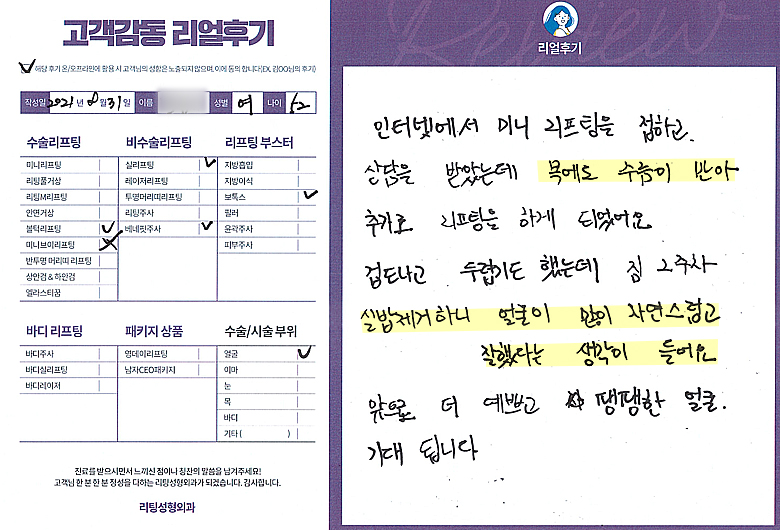 고객감동 리얼후기
해당 후기 온/오프라인에 활용 시 고객님의 성함은 노출되지 않으며, 이에 동의 합니다(EX. 김OO님의 후기)
작성일 2021년 8월 31일 이름 성별 여 나이 52
수술리프팅
미니리프팅
리팅풀거상
리팅M리프팅
안면거상
볼턱리프팅
미니브이리프팅
반투명 머리띠 리프팅
상안검 & 하안검
엘라스티꿈
비수술리프팅
실리프팅
레이저리프팅
투명머리띠리프팅
리팅주사
베네핏주사
리프팅 부스터
지방흡입
지방이식
보톡스
필러
윤곽주사
피부주사
바디 리프팅
바디주사
바디실리프팅
바디레이저
패키지 상품
영데이리프팅
남자CEO패키지
수술/시술 부위
얼굴
이마
눈
목
바디
기타 ( )
진료를 받으시면서 느끼신 점이나 칭찬의 말씀을 남겨주세요!
고객님 한 분 한 분 정성을 다하는 리팅성형외과가 되겠습니다. 감사합니다.
리팅성형외과
Review
리얼후기
인터넷에서 미니 리프팅을 접하고.
상담을 받았는데 목에도 수술이 반아
추가로 리프팅을 하게 되었어요.
겁도나고 두렵기도 했는데 짐 2주차
실밥제거하니 얼굴이 많이 자연스럽고
잘했다는 생각이 들어요
앞으로 더 예쁘고 땡땡한 얼굴.
기대 됩니다